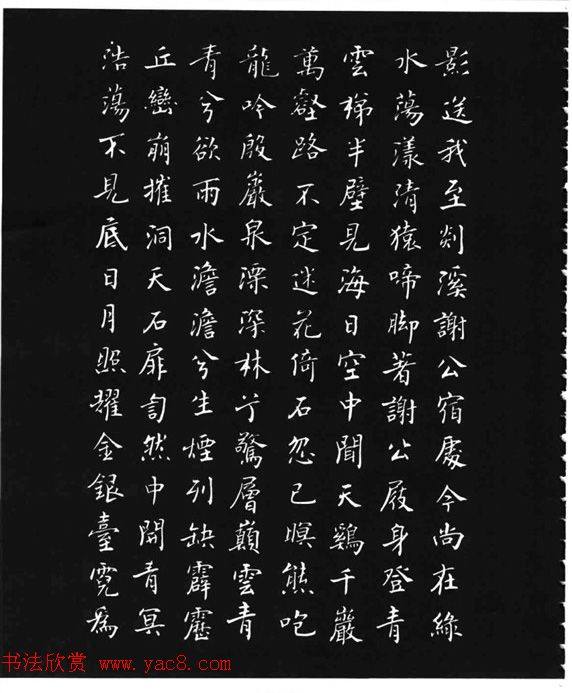 影送我至剡溪謝公宿處今尚在綠
水蕩漾清猿啼脚著謝公屐身登青
雲梯半壁見海日空中聞天鷄千巖
萬壑路不定迷花倚石忽已暝熊咆
龍吟殷巖泉溧深林兮驚層巔雲青
青兮欲雨水澹澹兮生煙列缺霹靂
丘巒崩摧洞天石扉訇然中開青冥
浩蕩不見底日月照耀金銀臺霓爲
书法欣赏 www.yac8.com